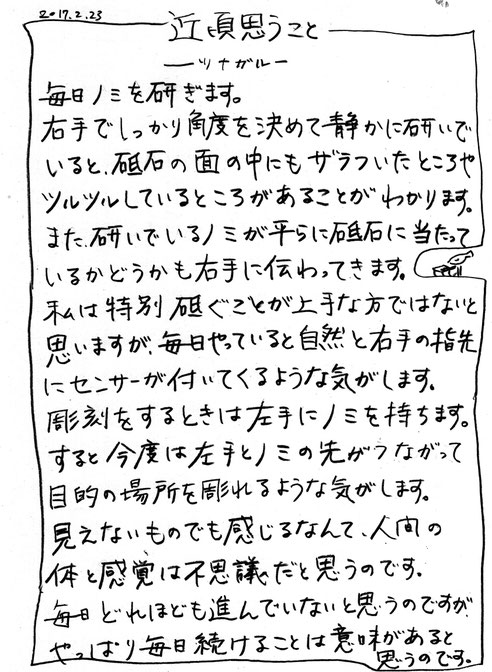 2017.2.23
近頃思うこと
ーツナガルー
毎日ノミを研ぎます。
右手でしっかり角度を決めて静かに研いで
いると、砥石の面の中にもザラついたところや
ツルツルしているところがあることがわかります。
また、研いでいるノミが平らに砥石に当たって
いるかどうかも右手に伝わってきます。
私は特別砥ぐことが上手な方ではないと
思いますが、毎日やっていると自然と右手の指先
にセンサーが付いてくるような気がします。
彫刻をするときは左手にノミを持ちます。
すると今度は左手とノミの先がつながって
目的の場所を彫れるような気がします。
見えないものでも感じるなんて、人間の
体と感覚は不思議だと思うのです。
毎日どれほども進んでいないと思うのですが、
やっぱり毎日続けることは意味があると
思うのです。